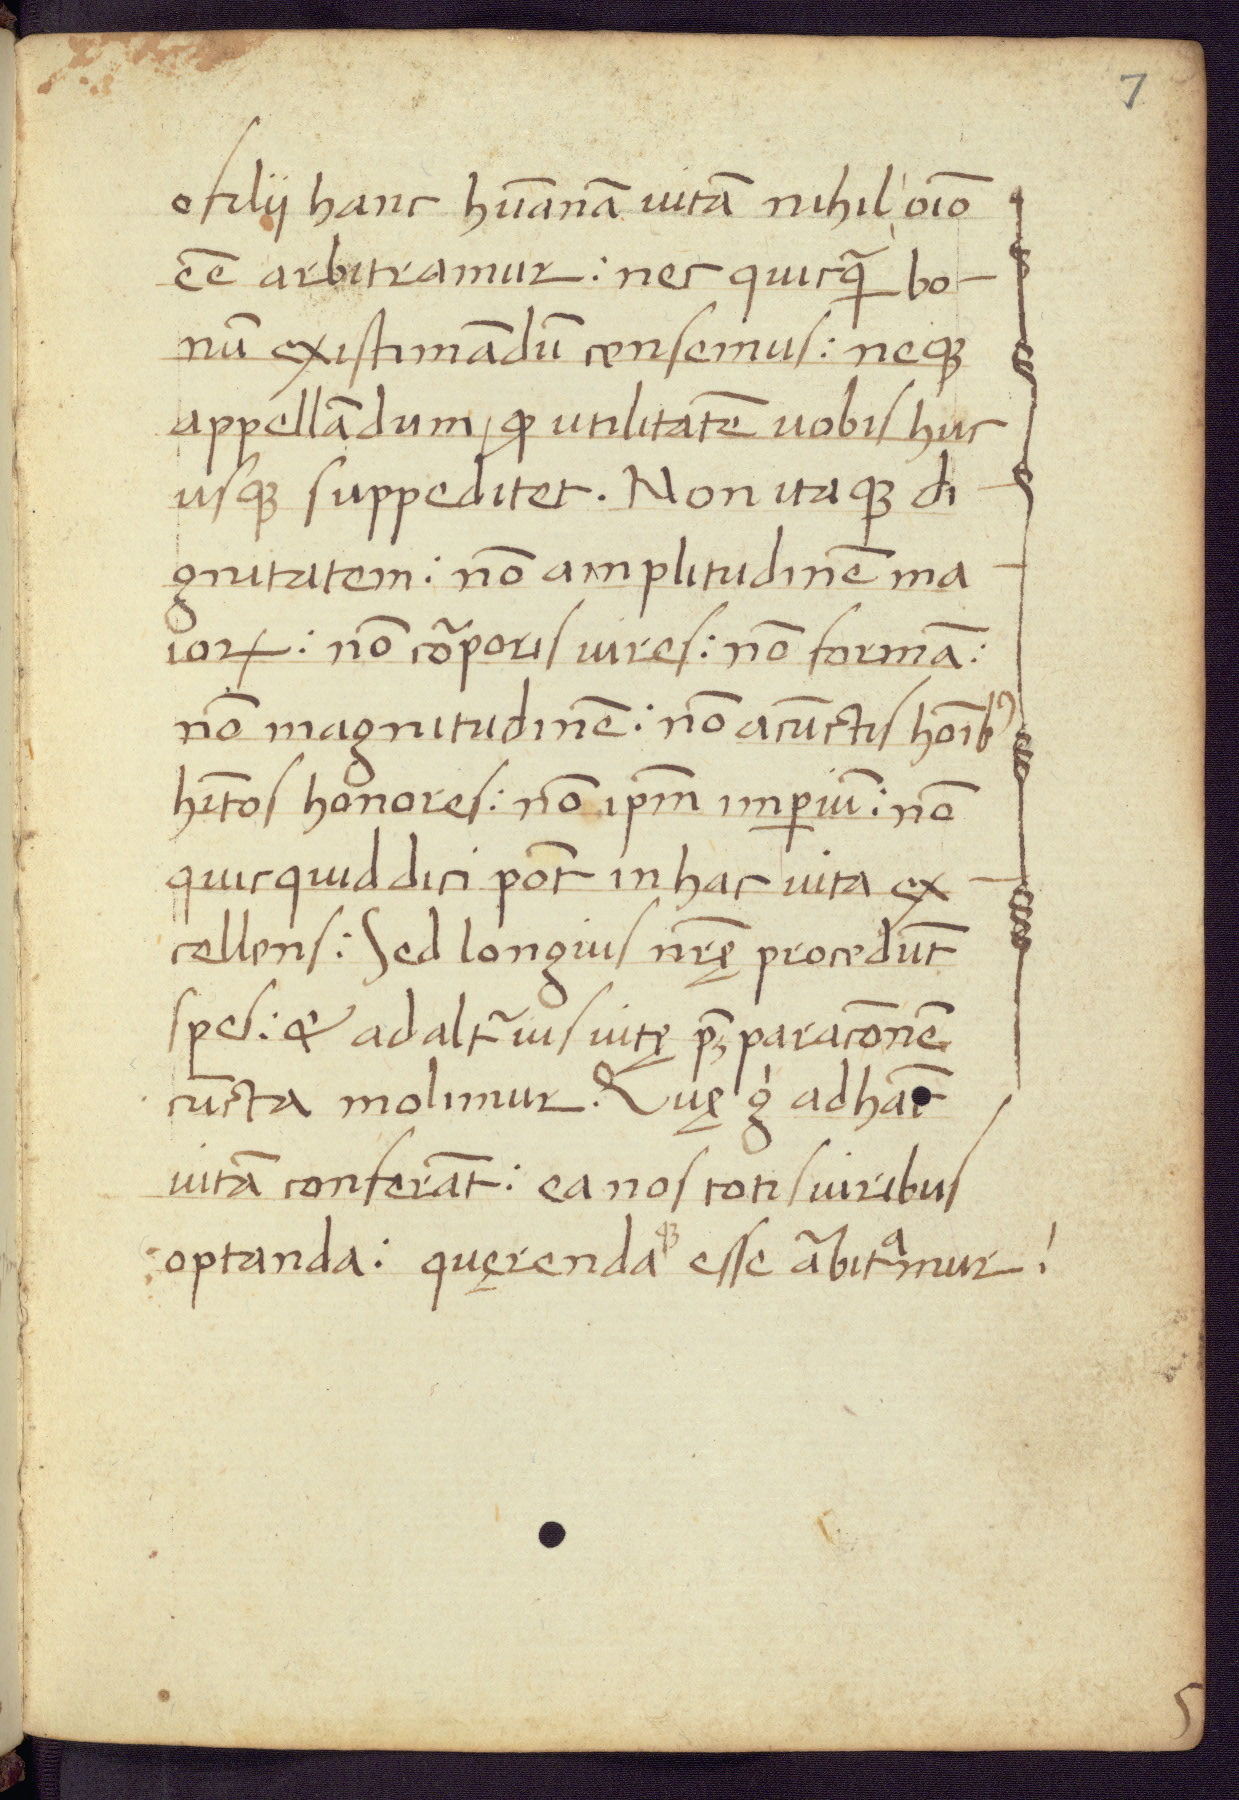 7
o filij hanc hūanā uitā nihil oīo
ēē arbitramur: nec quicq̄ bo-
nū existimādū censemus: neqꝫ
appellādum, ꝙ utilitatē uobis huc
usqꝫ suppeditet. Non itaqꝫ di-
gnitatem: nō amplitudinē ma-
ioꝝ: nō cōr̃poris uires: nō formā:
nō magnitudinē: nō a cūctis hoībꝰ
hītos honores: nō ip̄m imꝑiū: nō
quicquid dici pōt in hac uita ex-
cellens: Sed longius nr̄ę procedūt
spes: & ad alt̃ius uitę p̄ꝫparacōnē
cūcta molimur. Quę gͥ ad hāc
uitā conferāt: ea nos totis uiribus
optanda: quęrendaqꝫ esse ar̃bitᵃmur!
5